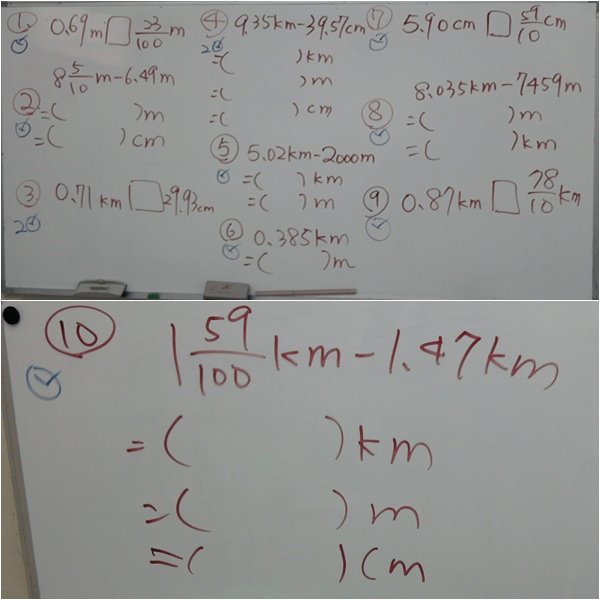 ① 0.69m □ 23/100 m
② 8 5/10 m-6.49m
=( )m
=( )cm
③ 0.71km □ 29.93cm
2
④ 9.35km-39.57cm
2
=( )km
=( )m
=( )cm
⑤ 5.02km-2000m
=( )km
=( )m
⑥ 0.385km
=( )m
⑦ 5.90cm □ 59/10 cm
⑧ 8.035km-7459m
=( )m
=( )km
⑨ 0.87km □ 78/10 km
⑩ 1 59/100 km-1.47km
=( )km
=( )m
=( )cm